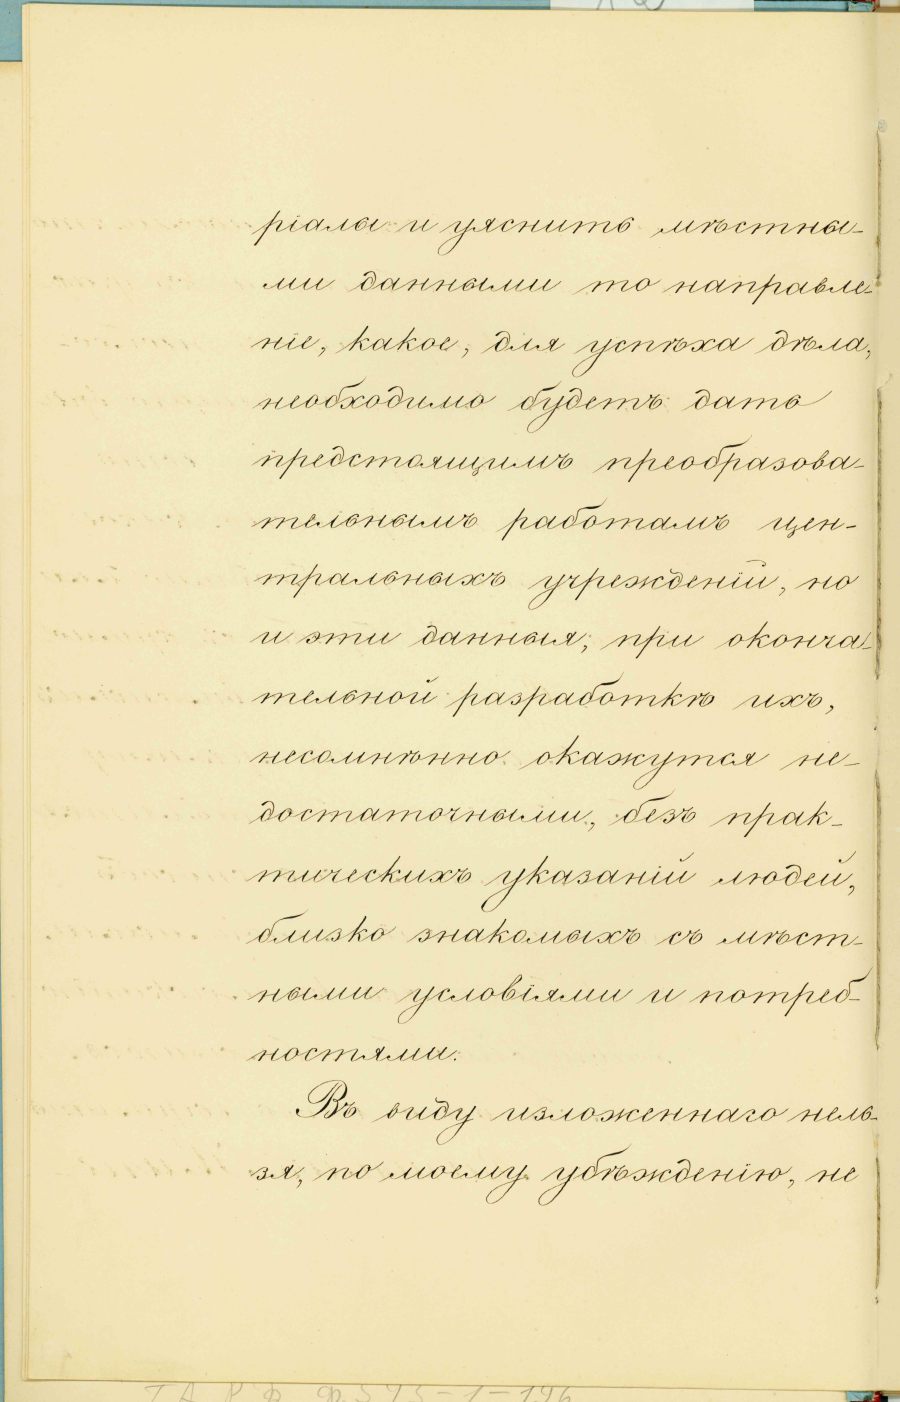 ріалы и уяснить мѣстны-
ми данными то направле-
ніе, какое, для успѣха дѣла,
необходимо будетъ дать
предстоящимъ преобразова-
тельнымъ работамъ цен-
тральныхъ учрежденій, но
и эти данныя, при оконча-
тельной разработкѣ ихъ,
несомнѣнно окажутся не-
достаточными, безъ прак-
тическихъ указаній людей,
близко знакомыхъ съ мѣст-
ными условіями и потреб-
ностями.
Въ виду изложеннаго нель-
зя, по моему убѣжденію, не
ГАРФ Ф.543-1-196